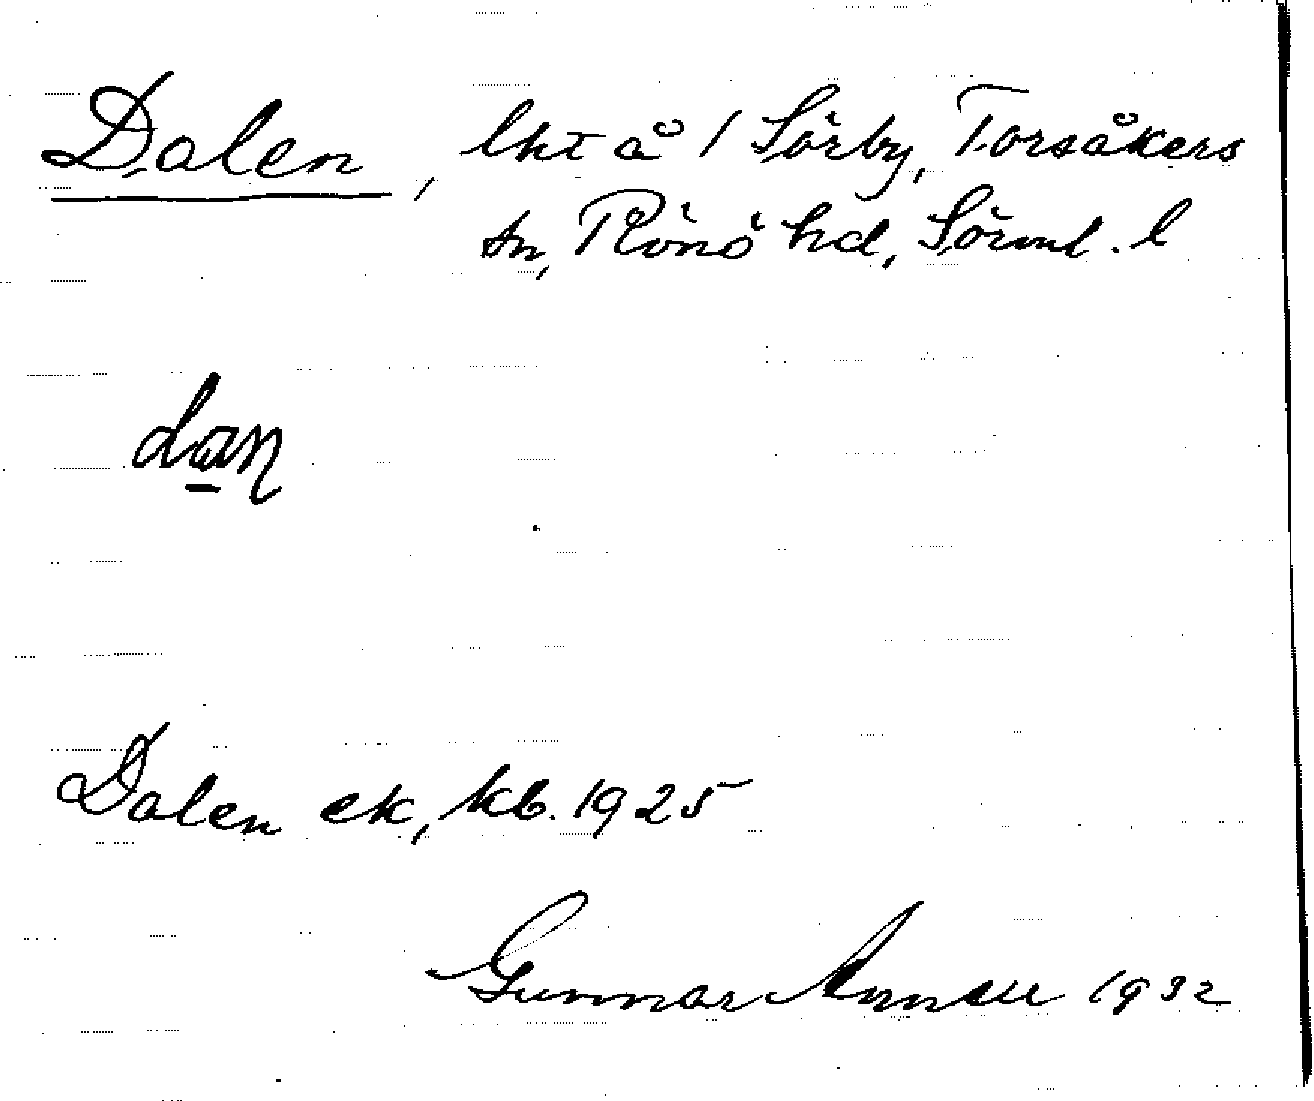 Dalen, lht å 1 Sörby, Torsåkers
sn, Rönö hd, Sörml. l
dan
Dalen ek, kb. 1925
Gunnar 1932